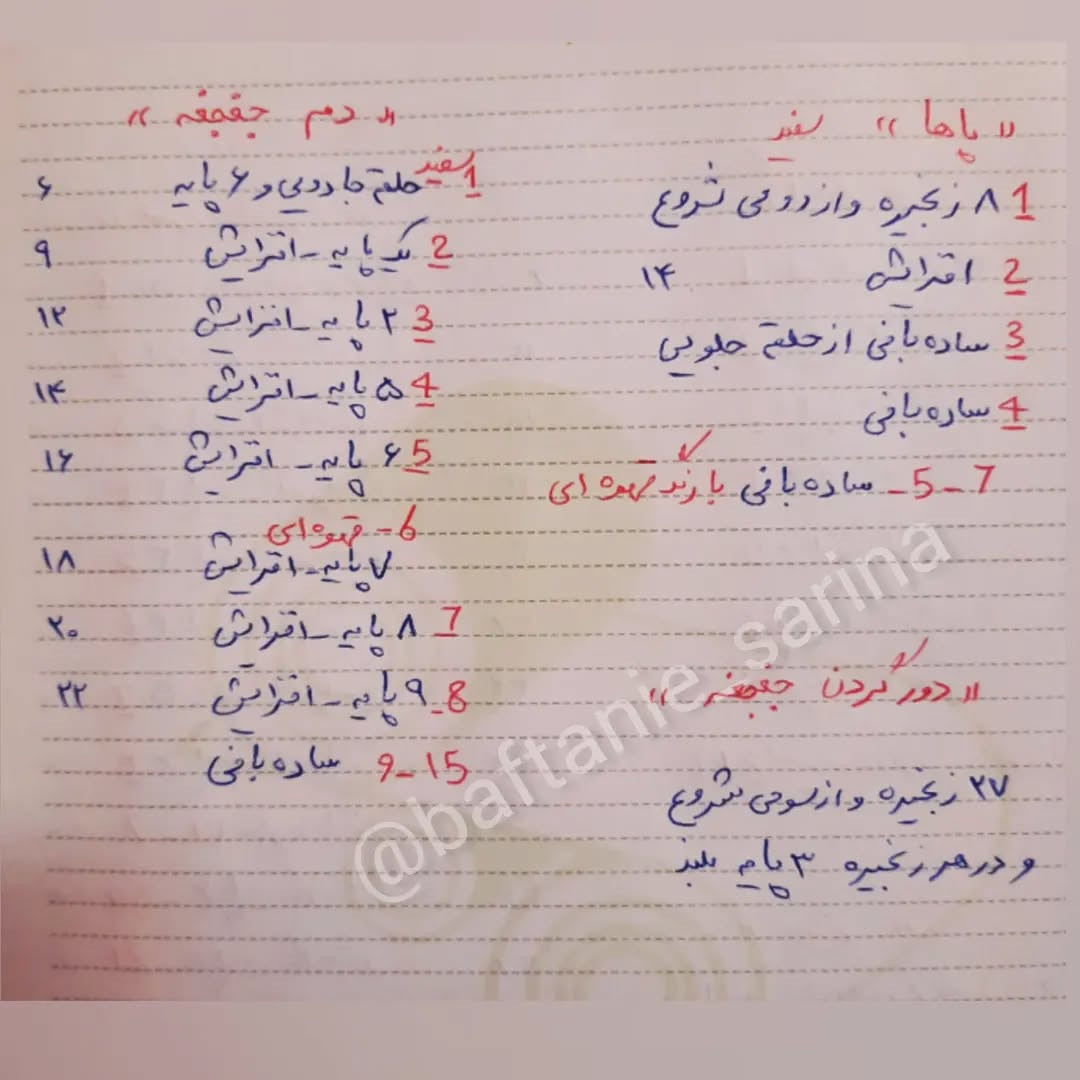 « پاها » سفید
1 ۸ زنجیره و از دومی شروع
2 افزایش ۱۴
3 ساده بافی از حلقه جلویی
4 ساده بافی
5-7- ساده بافی با رنگ قهوه ای
« دور گردن جغجغه »
۲۷ زنجیره و از سومی شروع
و در هر زنجیره ۳ پایه بلند
« دم جغجغه »
سفید
1 حلقه جادویی و ۶ پایه ۶
2 یک پایه - افزایش ۹
3 ۲ پایه - افزایش ۱۲
4 ۵ پایه - افزایش ۱۴
5 ۶ پایه - افزایش ۱۶
6- قهوه ای
۷ پایه - افزایش ۱۸
7 ۸ پایه - افزایش ۲۰
8- ۹ پایه - افزایش ۲۲
9-15 ساده بافی
@baftanie_sarina